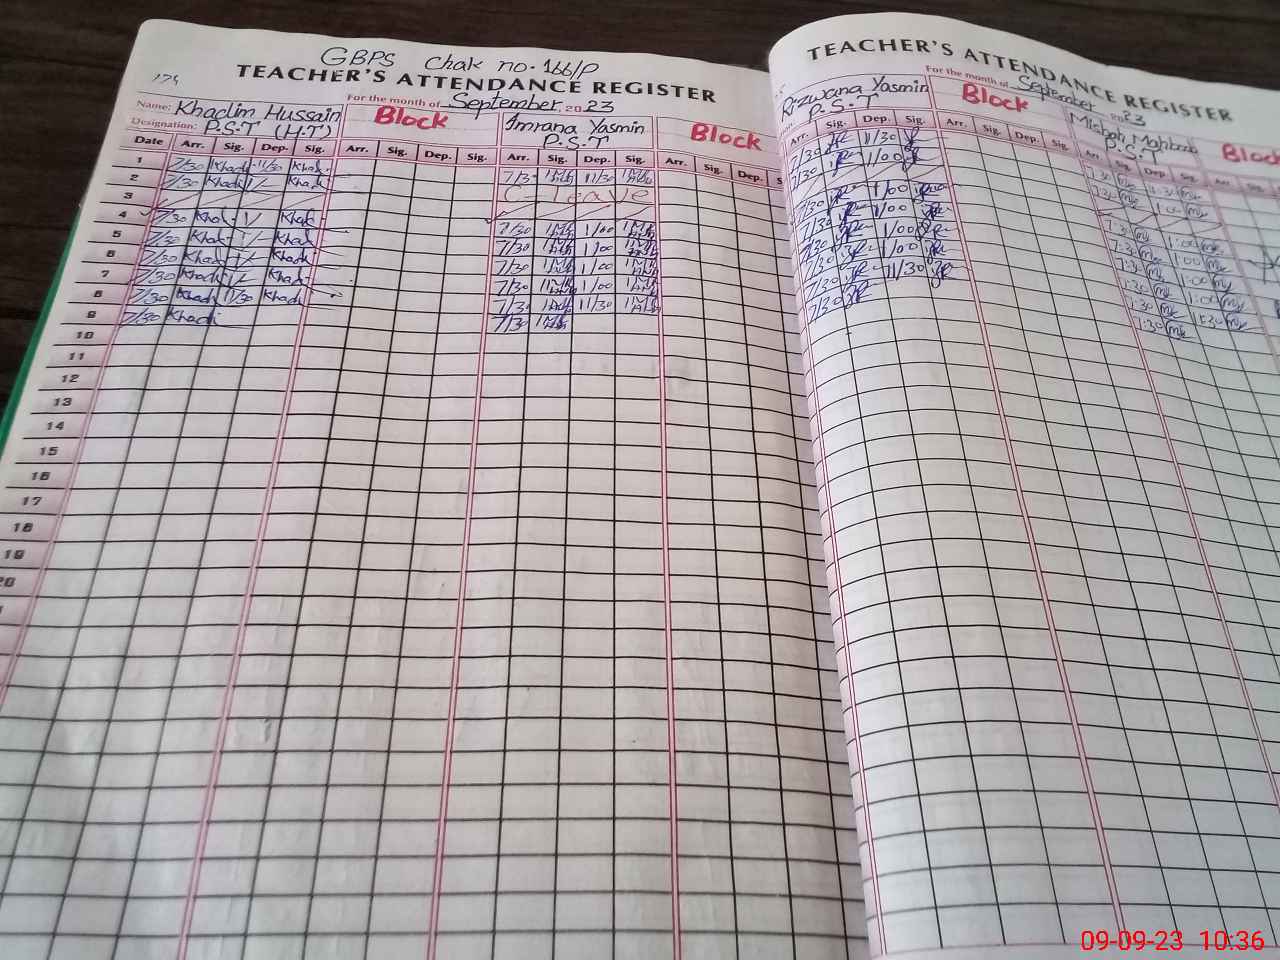 GBPS Chak no. 166/P
TEACHER'S ATTENDANCE REGISTER
For the month of September 2023
Name: Khadim Hussain
Designation: P.S.T (H.T)
Block
Imrana Yasmin
P.S.T
Block
Date Arr. Sig. Dep. Sig. Arr. Sig. Dep. Sig. Arr. Sig. Dep. Sig. Arr. Sig. Dep. S
1 7/30 Khadi 11/30 Khadi
2 7/30 Khadi 1/- Khadi 7/30 11/30
3 C-leave
4 7/30 Khadi 1/ Khadi
5 7/30 Khadi 1/- Khadi 7/30 1/00
6 7/30 Khadi 1/- Khadi 7/30 1/00
7 7/30 Khadi 1/- Khadi 7/30 1/00
8 7/30 Khadi 11/30 Khadi 7/30 1/00
9 7/30 Khadi 7/30 11/30
10 7/30
11
12
13
14
15
16
17
18
19
20
TEACHER'S ATTENDANCE REGISTER
For the month of September 2023
Rizwana Yasmin
P.S.T
Block
Misbah Mahboob
P.S.T
Block
Arr. Sig. Dep. Sig. Arr. Sig. Dep. Sig. Arr. Sig. Dep Sig. Arr.
7/30 11/30
7/30 1/00
7/30 1/00
7/30 1/00
7/30 1/00
7/30 1/00
7/30 11/30
7/30
7:30
7:30 1:00
7:30 1:00
7:30 1:00
7:30 1:00
7:30 1:00
7:30
7:30
09-09-23 10:36